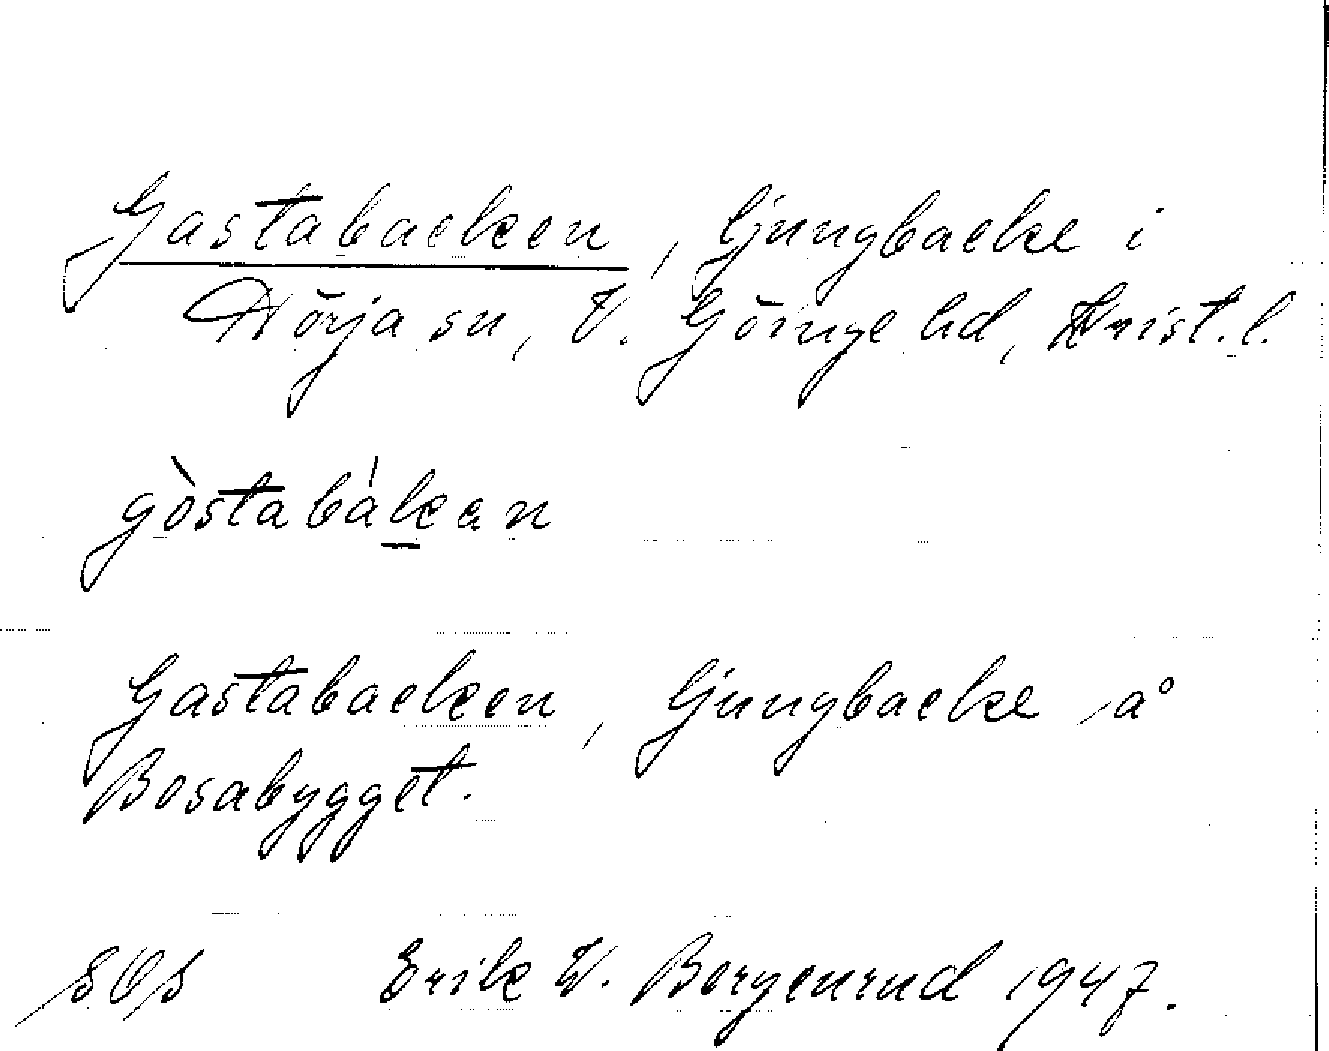 Gastabacken, ljungbacke i
Nörja sn, V. Göinge hd, Krist. l.
gòstabákan
Gastabacken, ljungbacke å
Bosabygget.
Erik W. Bergenrud 1947.